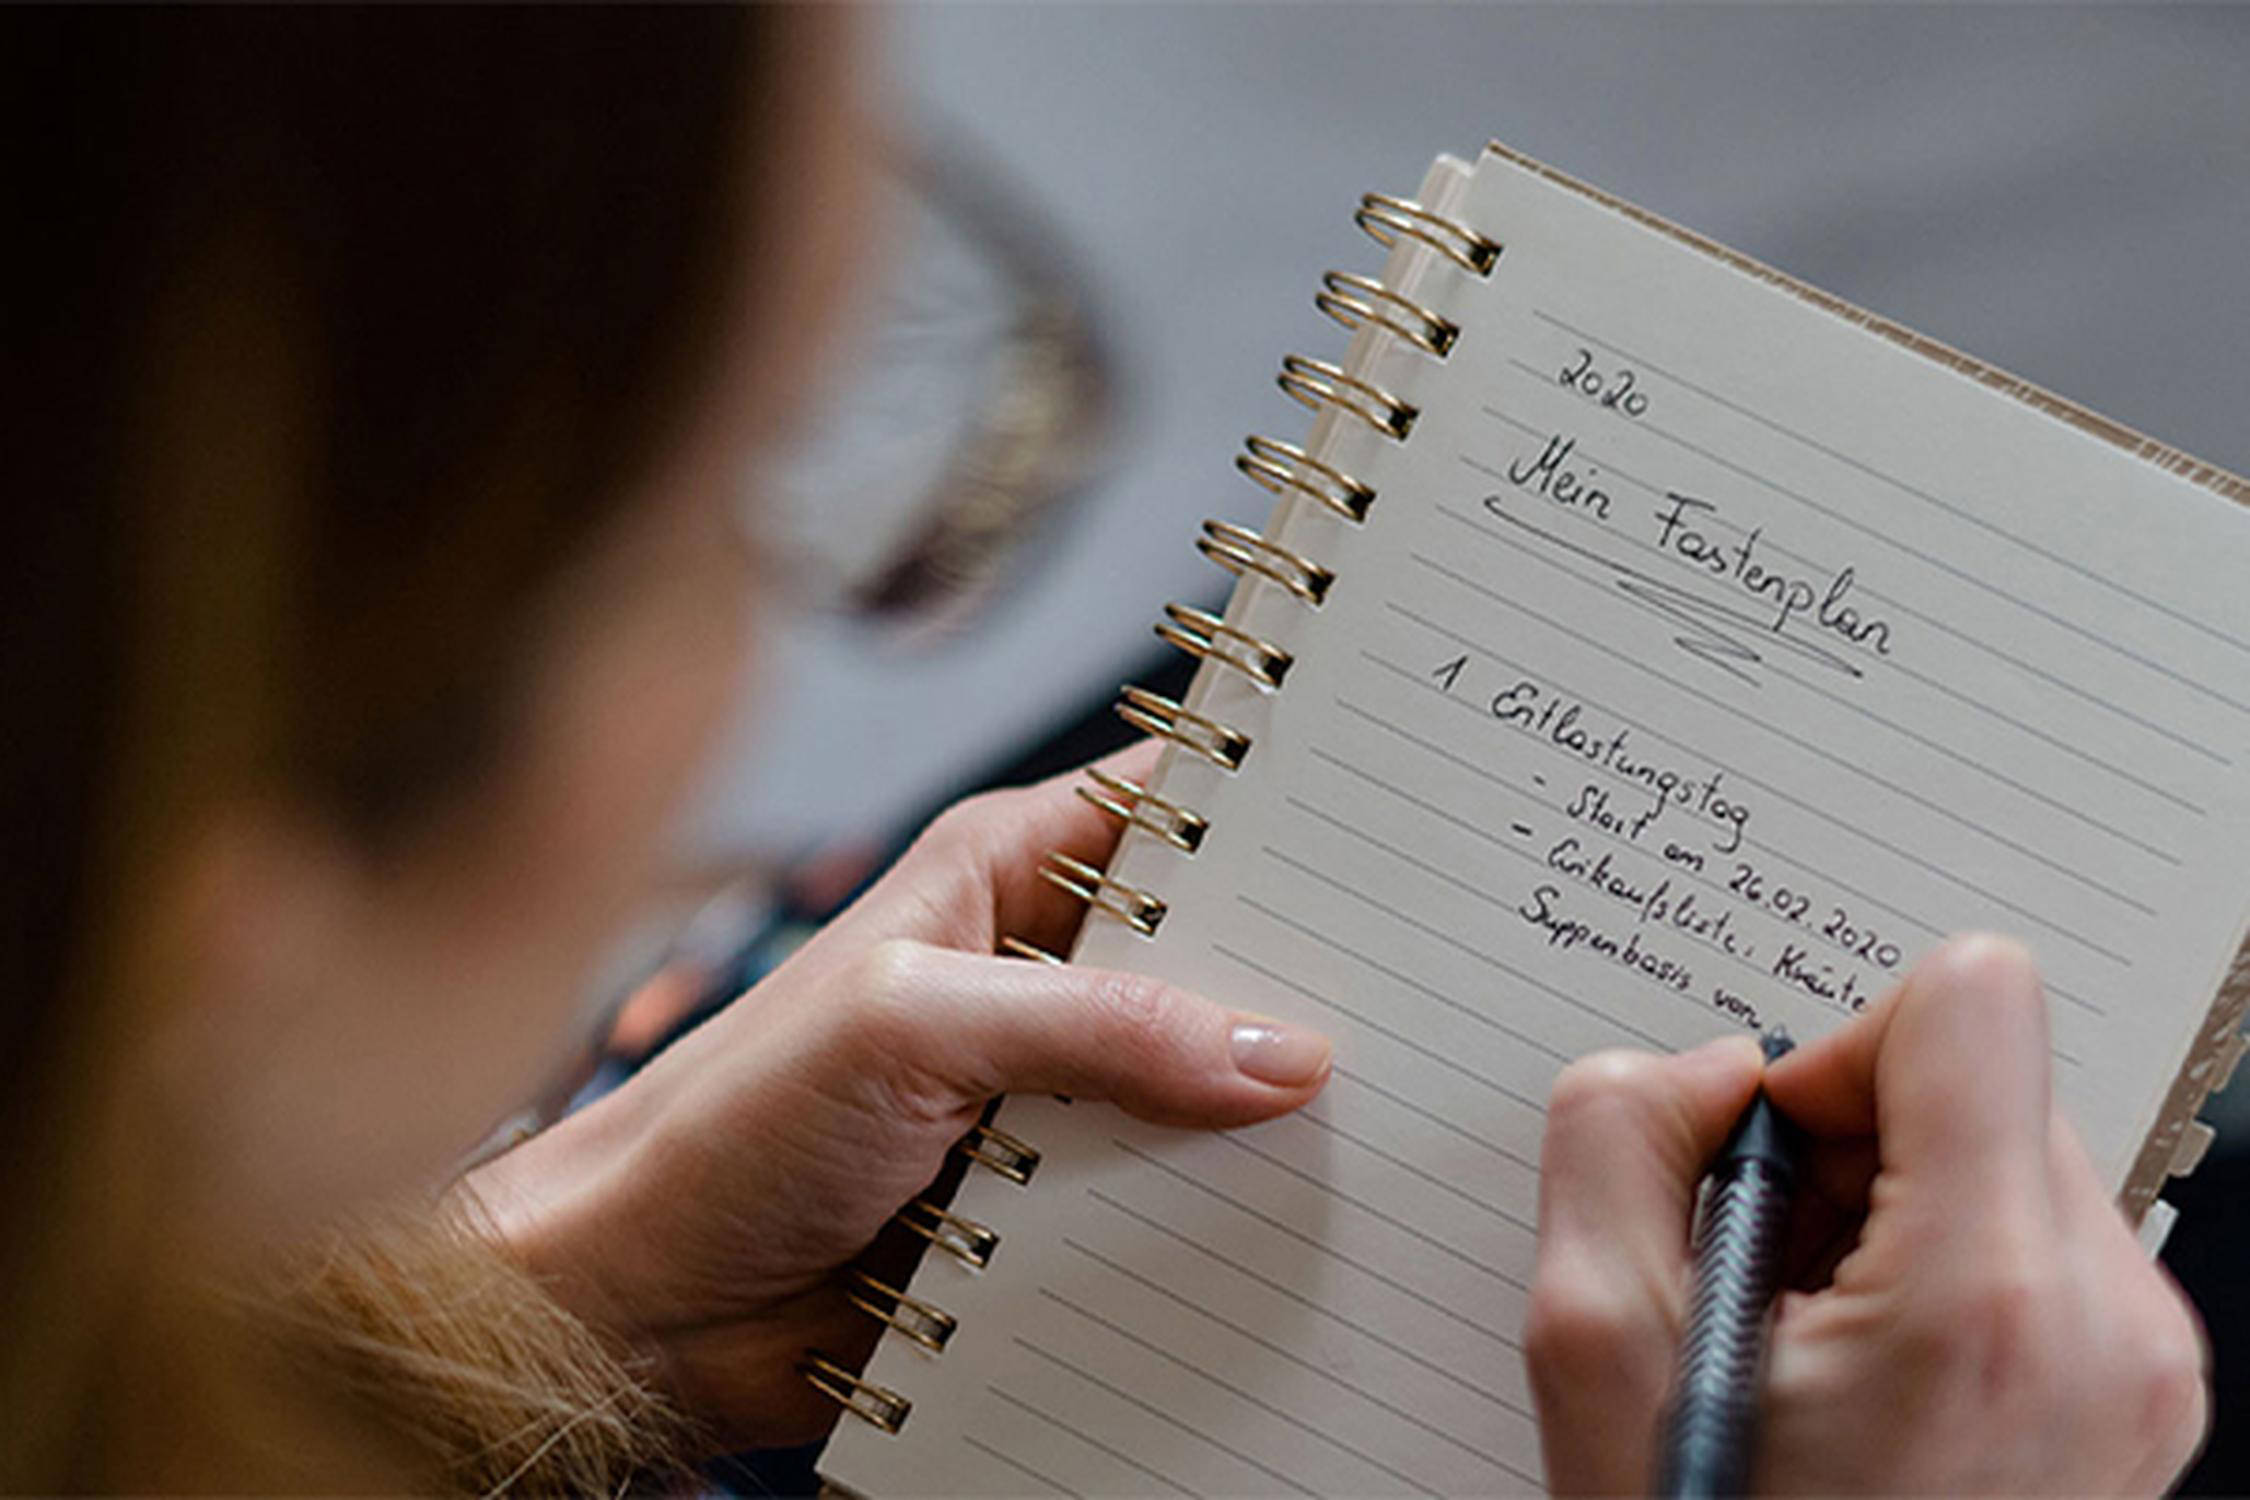 2020
Mein Fastenplan
1 Entlastungstag
- Start am 26.02.2020
- Einkaufsliste: Kräute
Suppenbasis von